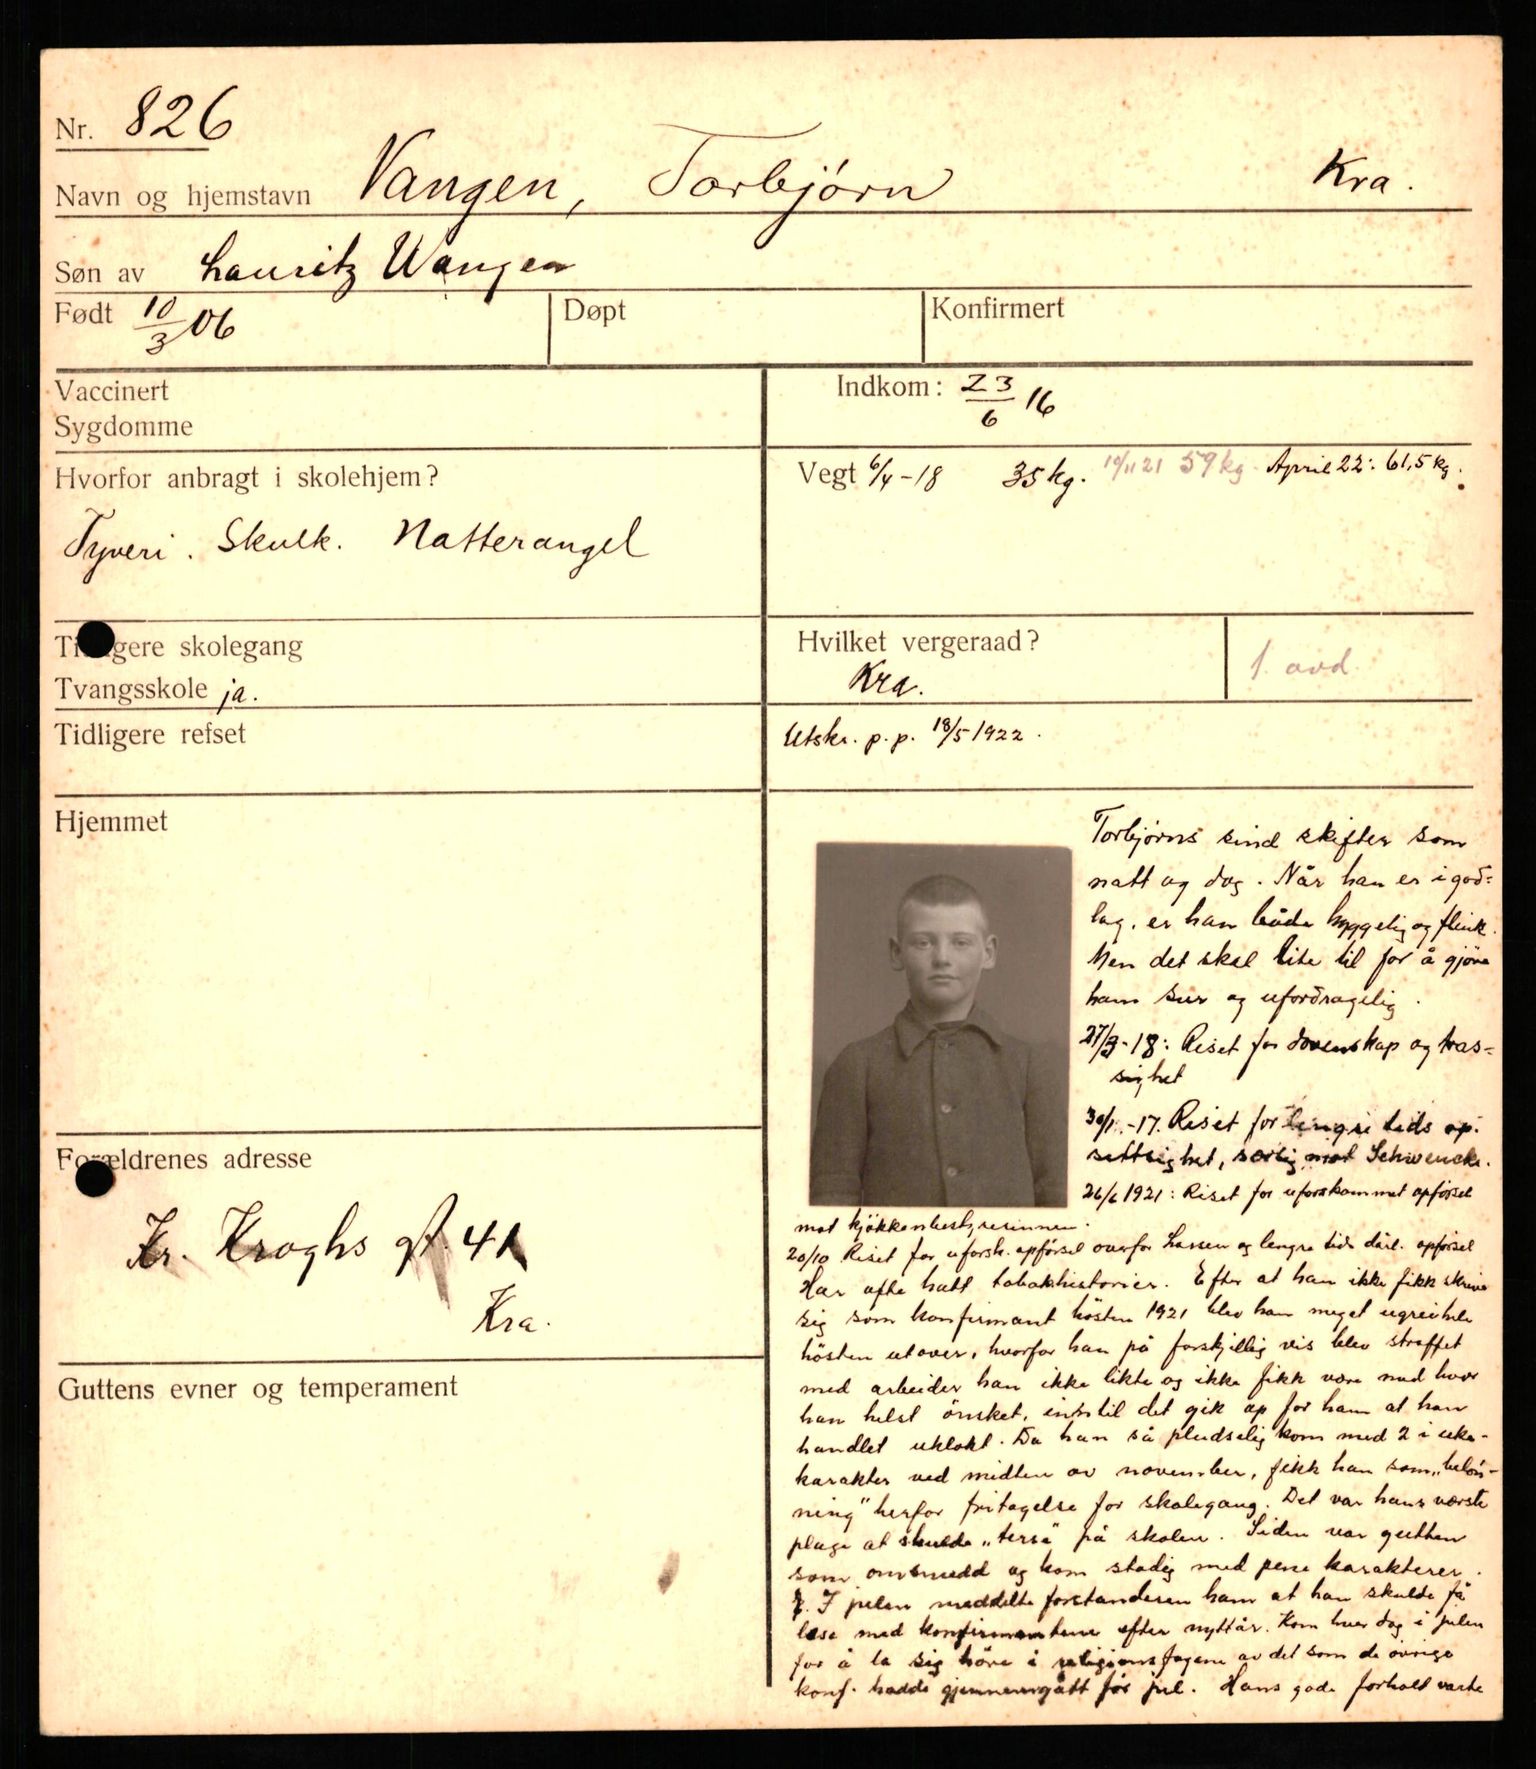 Nr. 826
Navn og hjemstavn Vangen, Torbjørn Kra.
Søn av Lauritz Wangen
Født 10/3 06 Døpt Konfirmert
Vaccinert
Sygdomme
Indkom: 23/6 16
Hvorfor anbragt i skolehjem?
Tyveri. Skulk. Natterangel
Vegt 6/4-18 35 kg. 10/11 21 59 kg. April 22: 61,5 kg.
Tidligere skolegang
Tvangsskole ja.
Hvilket vergeraad?
Kra.
1. avd.
Tidligere refset
Utskr. p.p. 18/5 1922.
Hjemmet
Forældrenes adresse
Kr. Kroghs gt. 41
Kra.
Guttens evner og temperament
Torbjørns sind skifter som
natt og dag. Når han er i god-
lag, er han både hyggelig og flink.
Men det skal lite til for å gjøre
ham sur og ufordragelig.
27/3-18: Riset for dovenskap og tras-
sighet
30/1.-17. Riset for lengre tids op-
settsighet, særlig mot Schwencke.
26/6 1921: Riset for uforskammet opførsel
mot kjøkkenbestyrerinnen.
20/10 Riset for uforsk. opførsel overfor Lassen og lengre tids dårl. opførsel
Har ofte hatt tobakhistorier. Efter at han ikke fikk skrive
sig som konfirmant høsten 1921 blev han meget ugrei hele
høsten utover, hvorfor han på forskjellig vis blev straffet
med arbeider han ikke likte og ikke fikk være med hvor
han helst ønsket, inntil det gik op for ham at han
handlet uklokt. Da han så pludselig kom med 2 i uke-
karakter ved midten av november, fikk han som „beløn-
ning" herfor fritagelse for skolegang. Det var hans værste
plage at skulde „terse" på skolen. Siden var gutten
som omsmedd og kom stadig med pene karakterer.
I julen meddelte forstanderen ham at han skulde få
læse med konfirmantene efter nyttår. Kom hver dag i julen
for å la sig høre i religionsfagene av det som de øvrige
konf. hadde gjennemgått før jul. Hans gode forhold varte